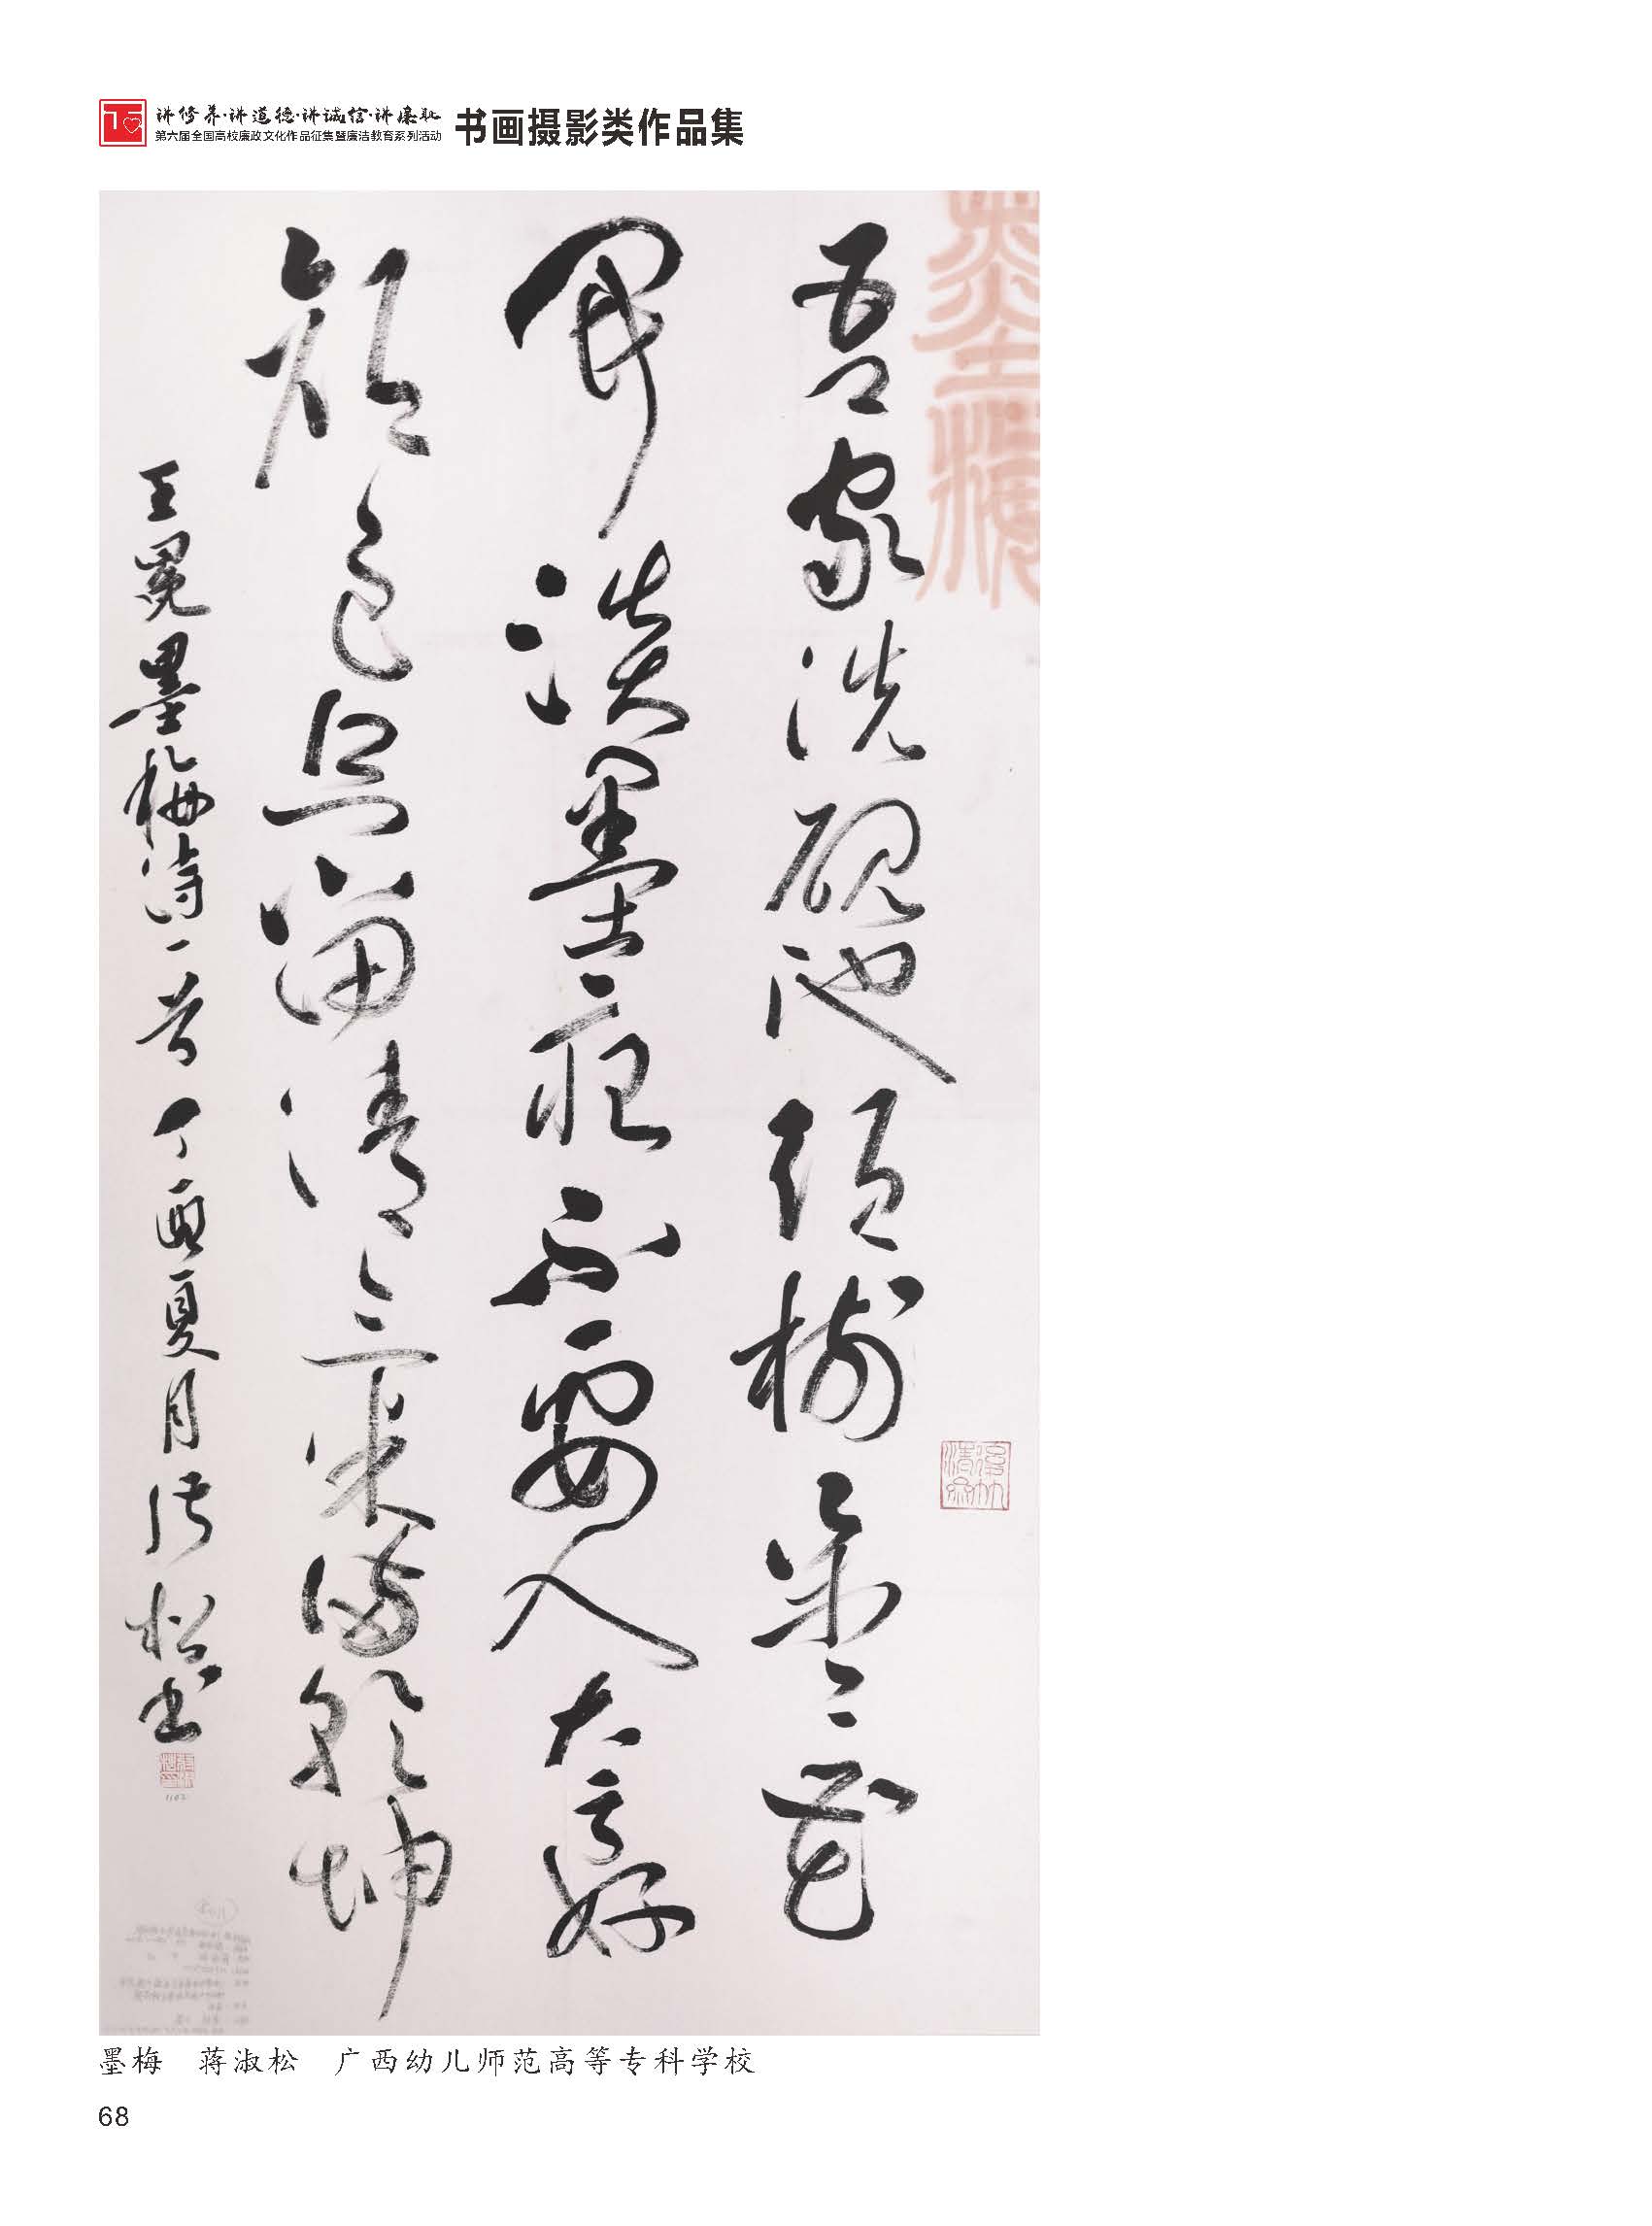 讲修养·讲道德·讲诚信·讲廉耻
第六届全国高校廉政文化作品征集暨廉洁教育系列活动
书画摄影类作品集
吾家洗硯池頭樹朵朵花
開淡墨痕不要人夸好
顏色只留清氣滿乾坤
王冕墨梅詩一首 丁酉夏月 淑松书
墨梅 蒋淑松 广西幼儿师范高等专科学校
68